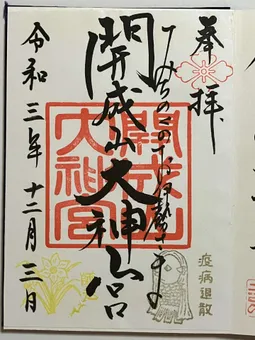 奉拝
みちのくの十伊勢さま
開成山大神宮
開成山
大神宮
令和三年十二月三日
疫病退散